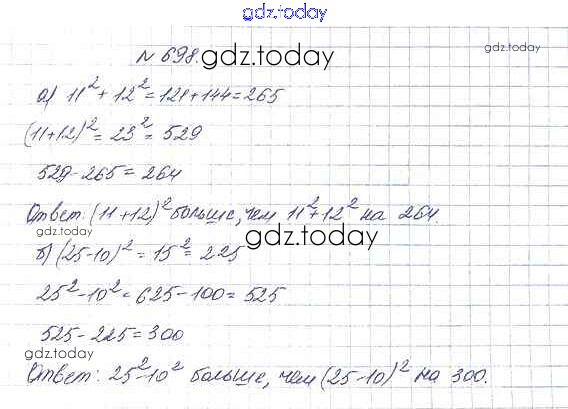 gdz.today
№ 698. gdz.today
gdz.today
а) 11² + 12² = 121 + 144 = 265
(11 + 12)² = 23² = 529
529 - 265 = 264
gdz.today
Ответ: (11 + 12)² больше, чем 11² + 12² на 264.
gdz.today
б) (25 - 10)² = 15² = 225
25² - 10² = 625 - 100 = 525
525 - 225 = 300
gdz.today
gdz.today
Ответ: 25² - 10² больше, чем (25 - 10)² на 300.